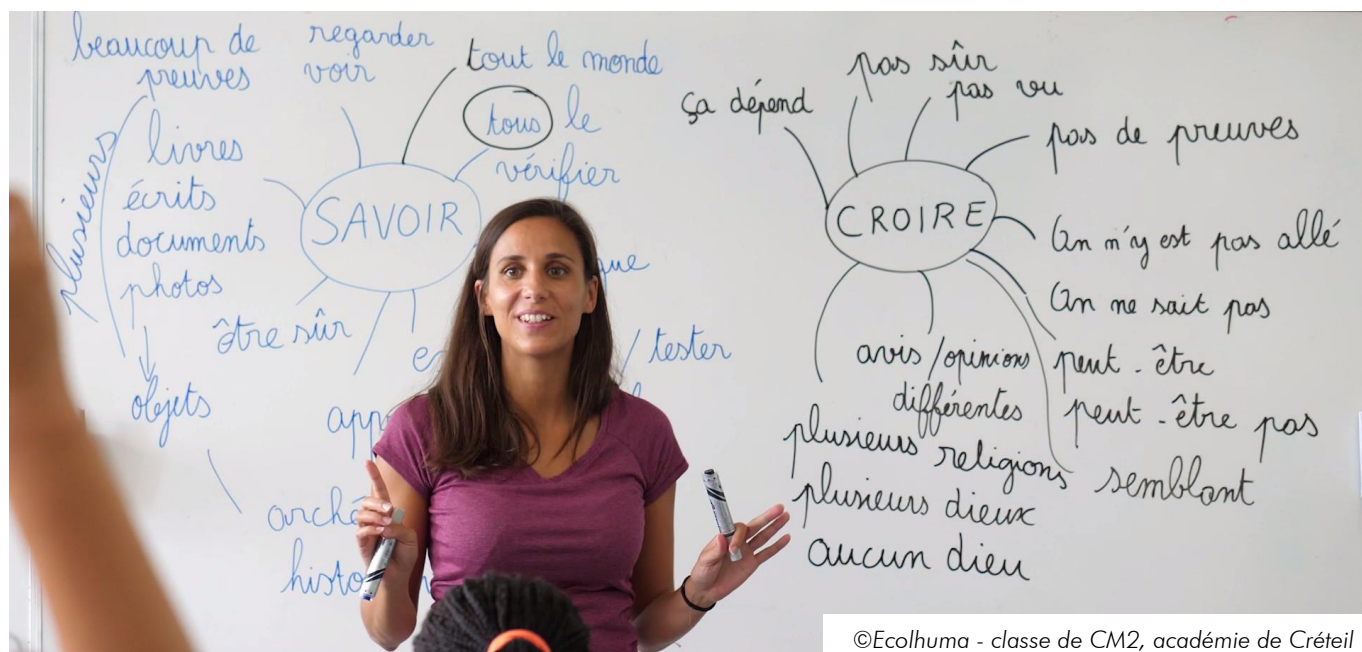 beaucoup de
preuves
regarder
voir
tout le monde
tous le
vérifier
plusieurs
livres
écrits
documents
photos
objets
SAVOIR
être sûr
/ tester
ça dépend
pas sûr
pas vu
pas de preuves
CROIRE
On n'y est pas allé
On ne sait pas
peut-être
peut-être pas
semblant
avis/opinions
différentes
plusieurs religions
plusieurs dieux
aucun dieu
©Ecolhuma - classe de CM2, académie de Créteil